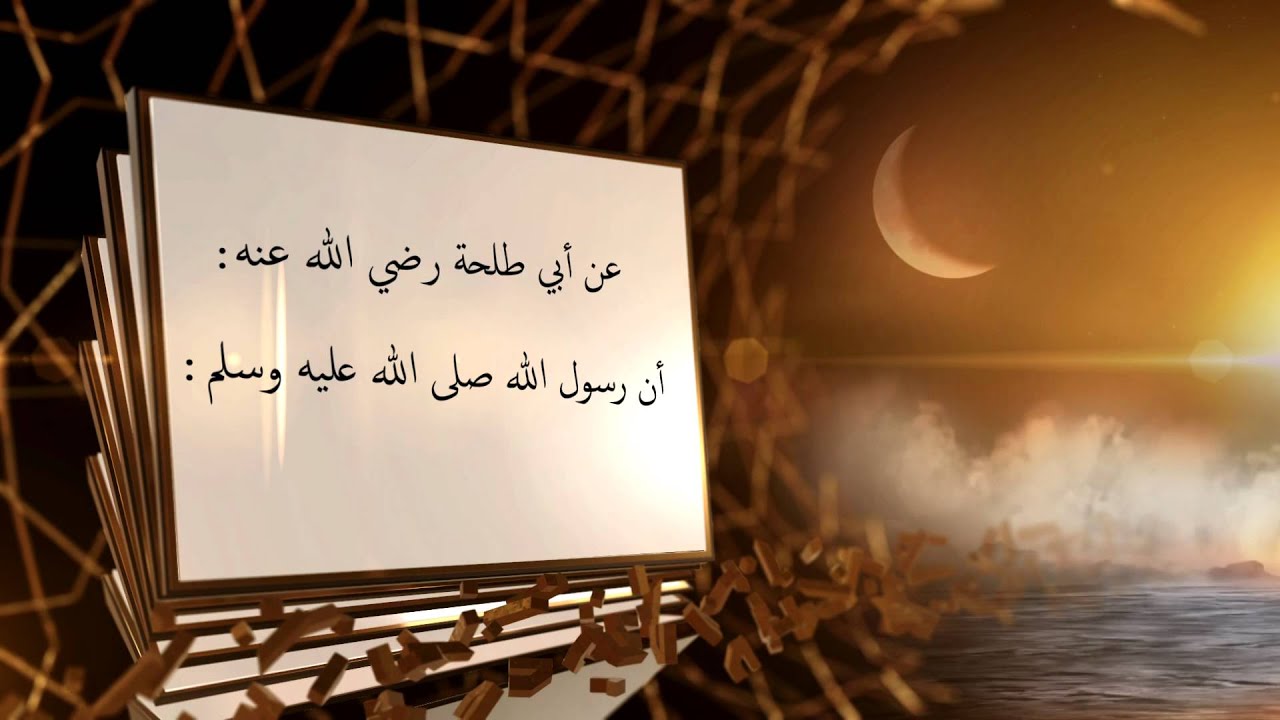 عن أبي طلحة رضي الله عنه :
أن رسول الله صلى الله عليه وسلم :